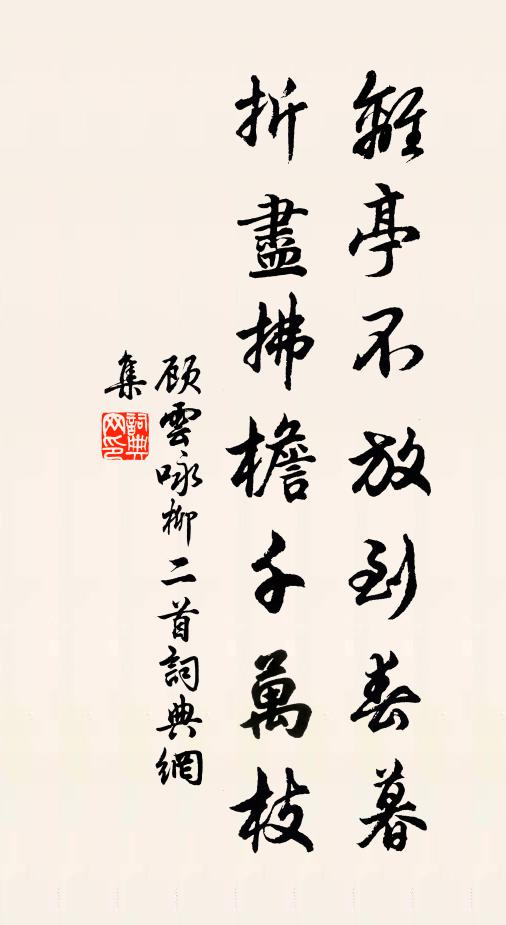 離亭不放到春暮
折盡拂檐千萬枝
顾雲咏柳二首詞典網
集
詞典
网印